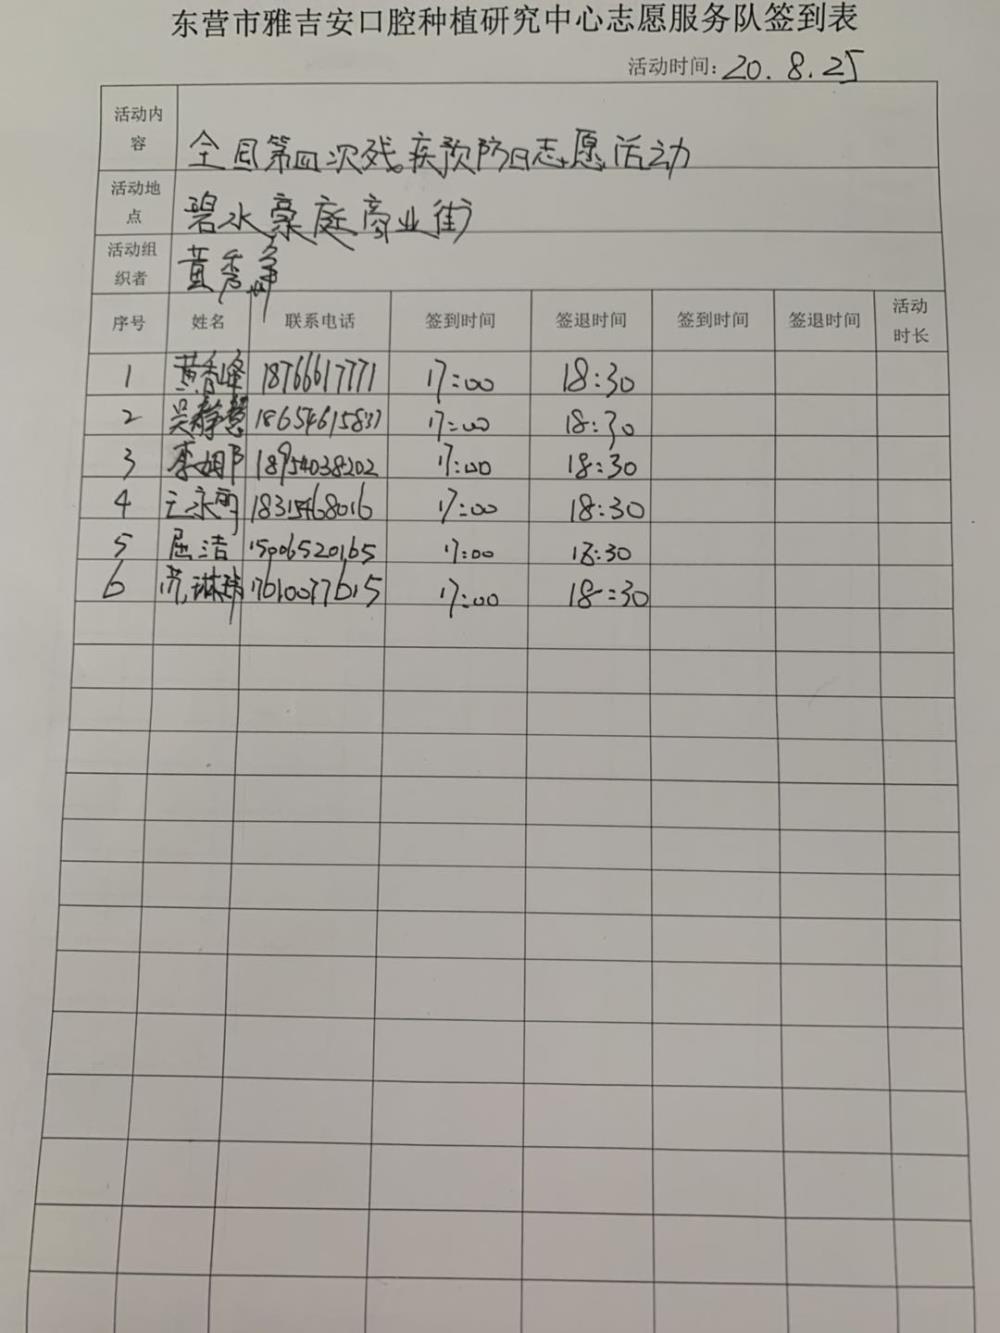 东营市雅吉安口腔种植研究中心志愿服务队签到表
活动时间：20.8.25
活动内容 全国第四次残疾预防日志愿活动
活动地点 碧水豪庭商业街
活动组织者 黄秀峰
序号 姓名 联系电话 签到时间 签退时间 签到时间 签退时间 活动时长
1 黄秀峰 18766617771 17:00 18:30
2 吴静慧 18654615837 17:00 18:30
3 李 18954038202 17:00 18:30
4 王永丽 18315468016 17:00 18:30
5 屈洁 15906520165 17:00 18:30
6 苏琳玮 17610077615 17:00 18:30